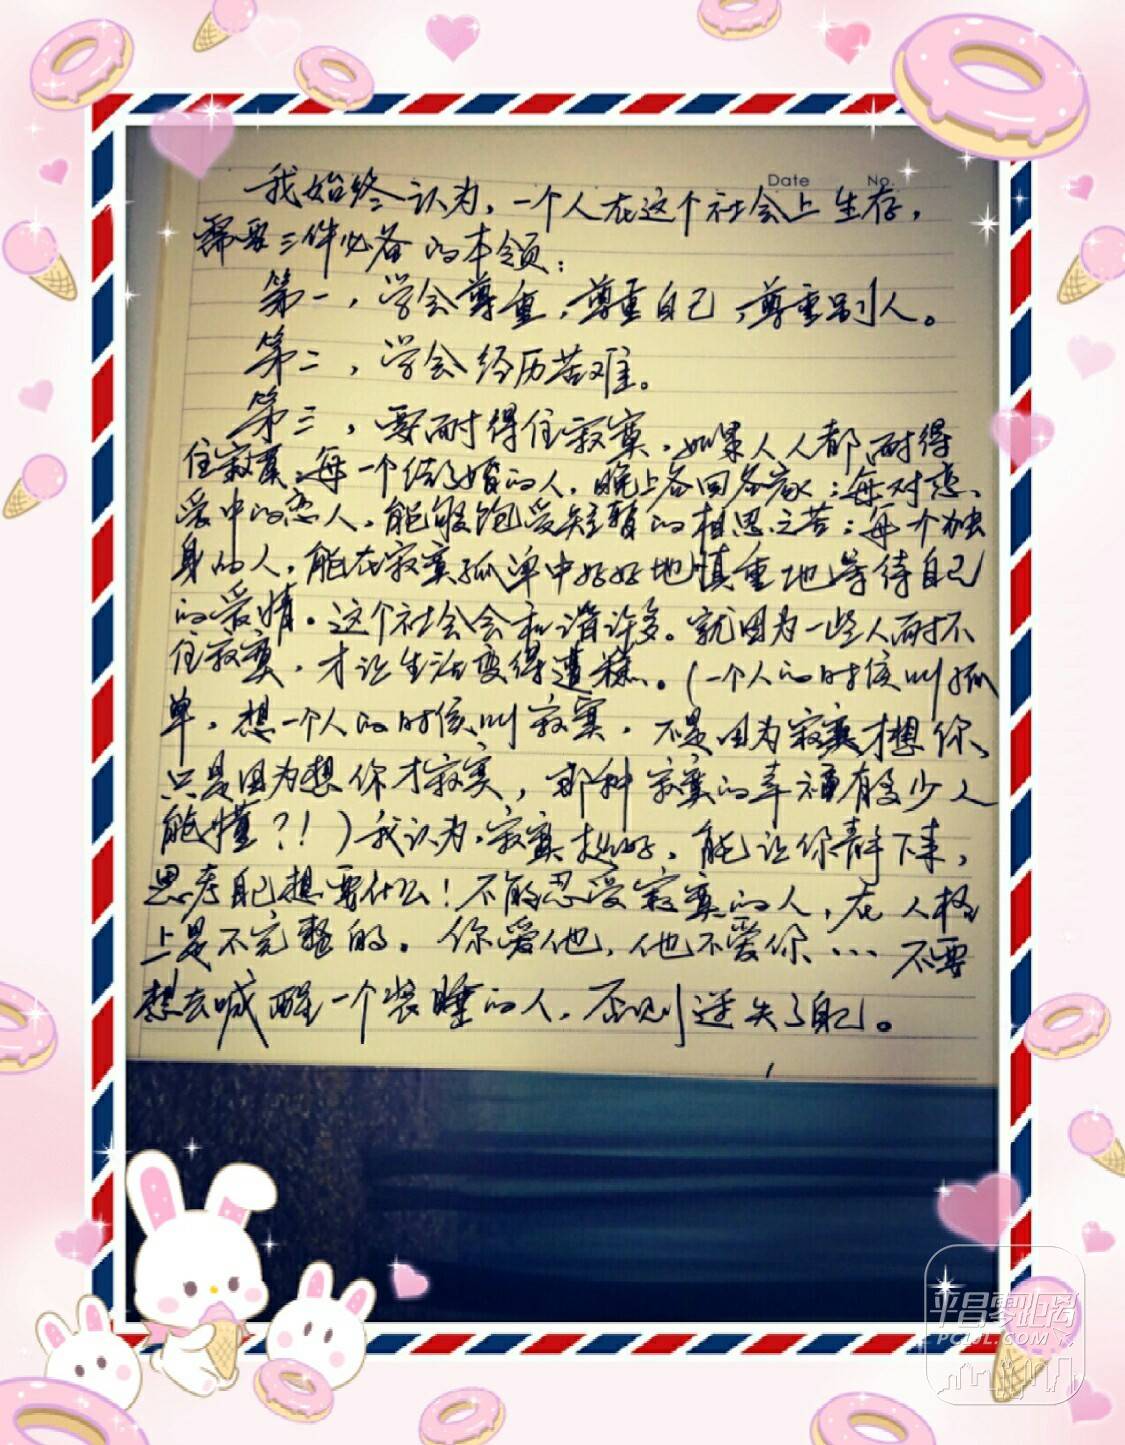 Date No.
我始终认为，一个人在这个社会上生存，
需要三件必备的本领：
第一，学会尊重，尊重自己，尊重别人。
第二，学会经历苦难。
第三，要耐得住寂寞，如果人人都耐得
住寂寞，每一个结了婚的人，晚上各回各家；每对恋
爱中的恋人，能够饱受短暂的相思之苦；每个独
身的人，能在寂寞孤单中好好地慎重地等待自己
的爱情。这个社会会和谐许多。就因为一些人耐不
住寂寞，才让生活变得遭糕。(一个人的时候叫孤
单，想一个人的时候叫寂寞，不是因为寂寞才想你，
只是因为想你才寂寞，那种寂寞的幸福有多少人
能懂？！)我认为，寂寞挺好，能让你静下来，
思考自己想要什么！不能忍受寂寞的人，在人格
上是不完整的。你爱他，他不爱你…不要
想去喊醒一个装睡的人，否则迷失了自己。
平昌零距离
PCLJL.COM